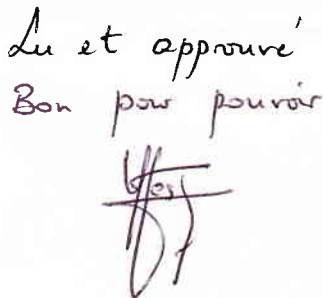 Lu et approuvé
Bon pour pouvoir